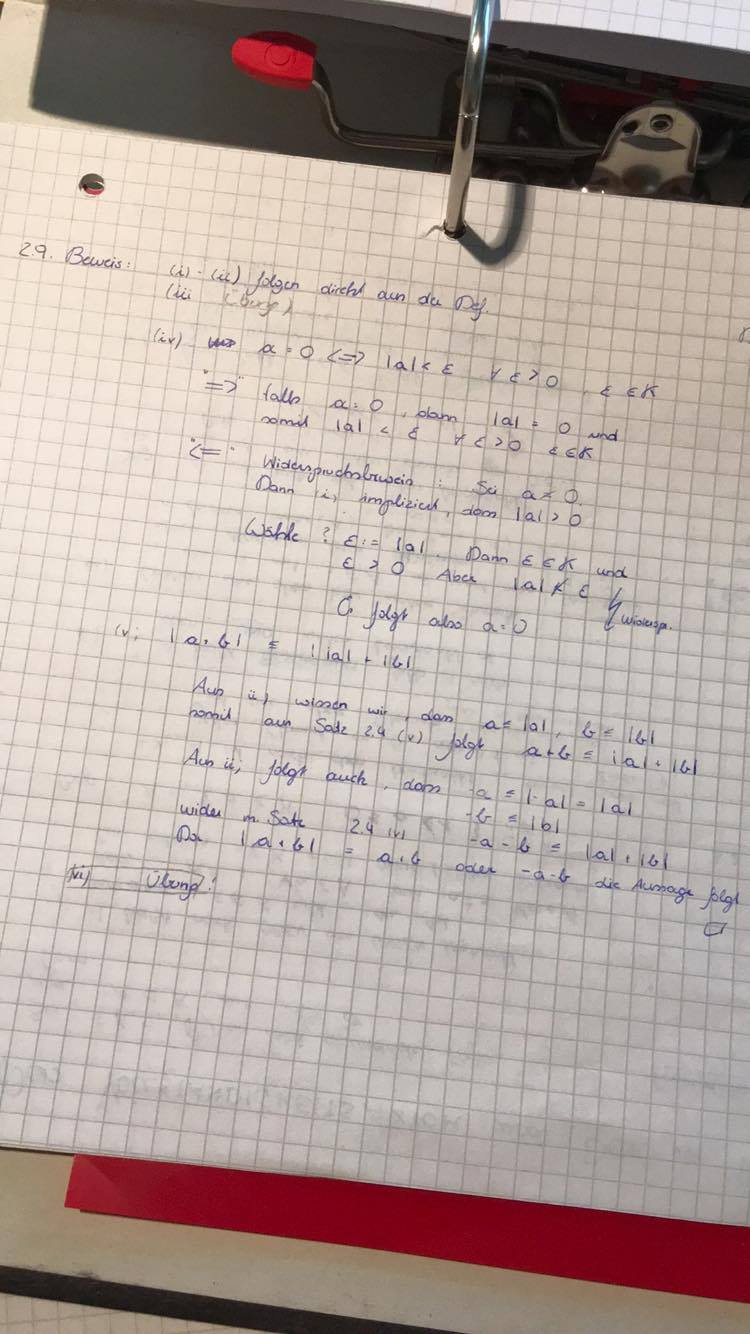 2.9. Beweis: (i) - (ii) folgen direkt aus der Def.
(iii (Übung)
(iv) a = 0 <=> |a| < ε ∀ ε > 0, ε ∈ K
"=>" falls a = 0, dann |a| = 0 und
somit |a| < ε ∀ ε > 0 ε ∈ K
"<=" Widerspruchsbeweis: Sei a ≠ 0
Dann i, impliziert, dass |a| > 0
Wähle ? ε := |a|. Dann ε ∈ K und
ε > 0 Aber |a| ≮ ε
folgt also a = 0 Widersp.
(v, |a + b| ≤ |a| + |b|
Aus ii, wissen wir, dass a ≤ |a|, b ≤ |b|
somit aus Satz 2.4 (v) folgt a + b ≤ |a| + |b|
Aus ii, folgt auch, dass -a ≤ |-a| = |a|
-b ≤ |b|
wider m Satz 2.4 (v) -a - b ≤ |a| + |b|
Da |a + b| = a + b oder -a-b die Aussage folgt
□
(vi) Übung!